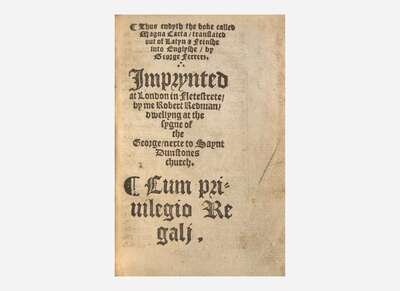 ¶ Thus endyth the boke called
Magna Carta / translated
out of Latyn & Frenshe
into Englyshe / by
George Ferrers.
Imprynted
at London in Fletestrete /
by me Robert Redman /
dwellyng at the
sygne of
the
George / nexte to Saynt
Dunstones
church.
¶ Cum pri-
uilegio Re
gali.